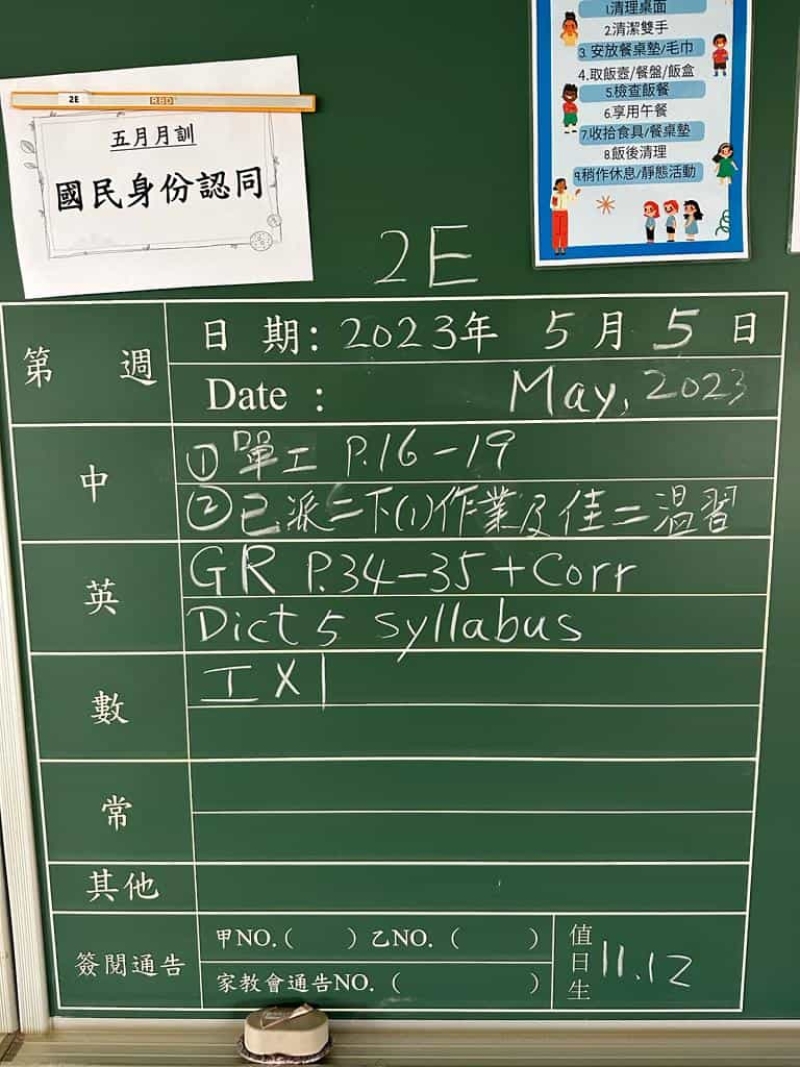 1.清理桌面
2.清潔雙手
3.安放餐桌墊/毛巾
4.取飯壺/餐盤/飯盒
5.檢查飯餐
6.享用午餐
7.收拾食具/餐桌墊
8.飯後清理
9.稍作休息/靜態活動
2E RBD
五月月訓
國民身份認同
2E
第 週
日 期: 2023年 5 月 5 日
Date : May, 2023
中
① 單工 P.16-19
② 已派二下(1)作業及佳二溫習
英
GR P.34-35+Corr
Dict 5 syllabus
數
工 X 1
常
其他
簽閱通告
甲NO.( ) 乙NO. ( )
家教會通告NO. ( )
值日生 11.12